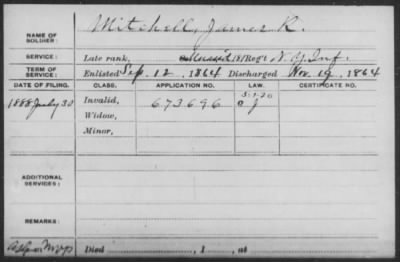 NAME OF SOLDIER: Mitchell, James R.
SERVICE: Late rank, 181 Reg't N.Y. Inf.
TERM OF SERVICE: Enlisted Sep. 12, 1864 Discharged Nov. 19, 1864
DATE OF FILING. CLASS. APPLICATION NO. LAW. CERTIFICATE NO.
1888 July 30 Invalid, 673696
Widow,
Minor,
ADDITIONAL SERVICES:
REMARKS:
Died , 1 , at